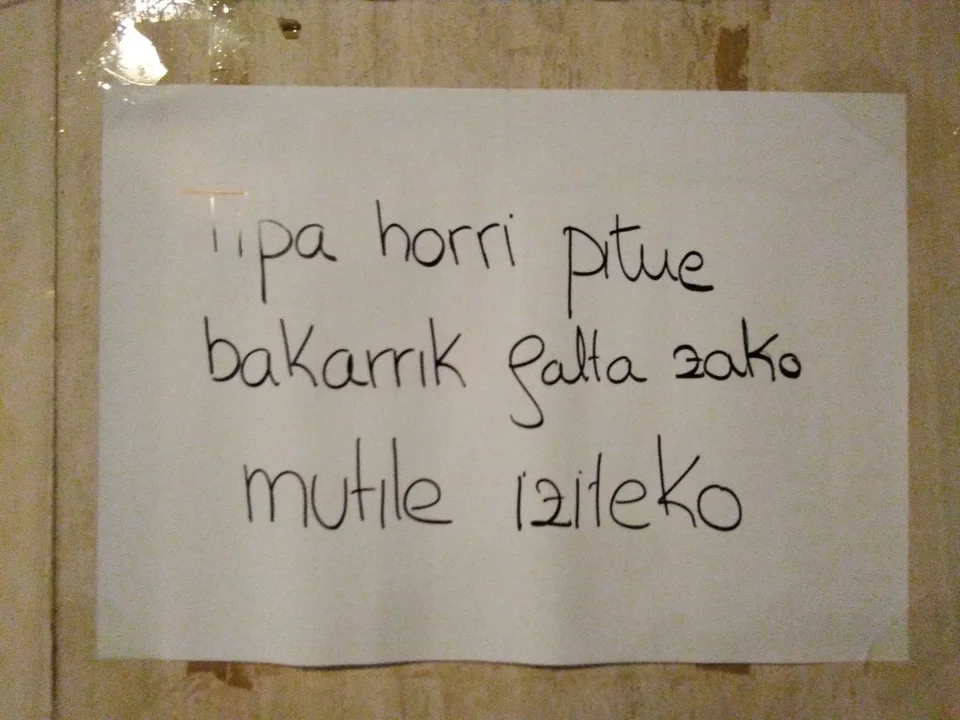 Tipa horri pitue
bakarrik falta zako
mutile iziteko